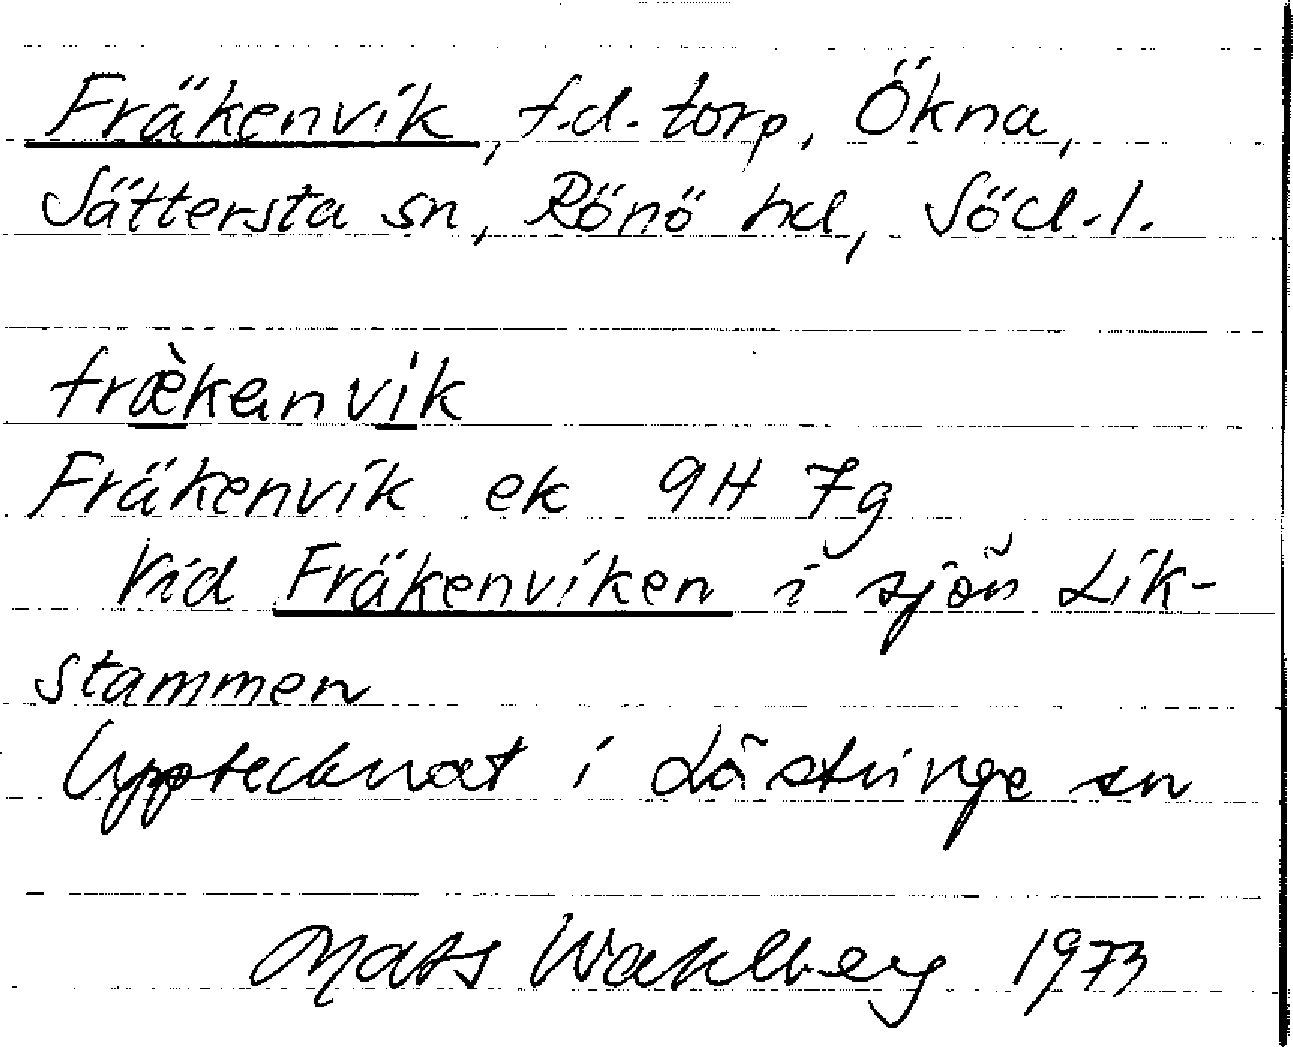 Fräkenvik, f.d. torp, Ökna,
Sättersta sn, Rönö hd, Söd.l.
fræ̀kenvik
Fräkenvik ek 9H 7g
Vid Fräkenviken i sjön Lik-
stammen
Upptecknat i Lästringe sn
Mats Wahlberg 1973